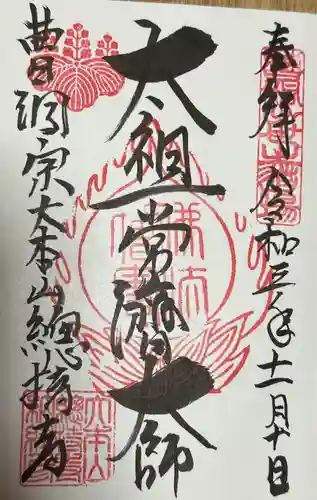 奉拝 令和三年十一月十日
太祖常濟大師
曹洞宗大本山總持寺